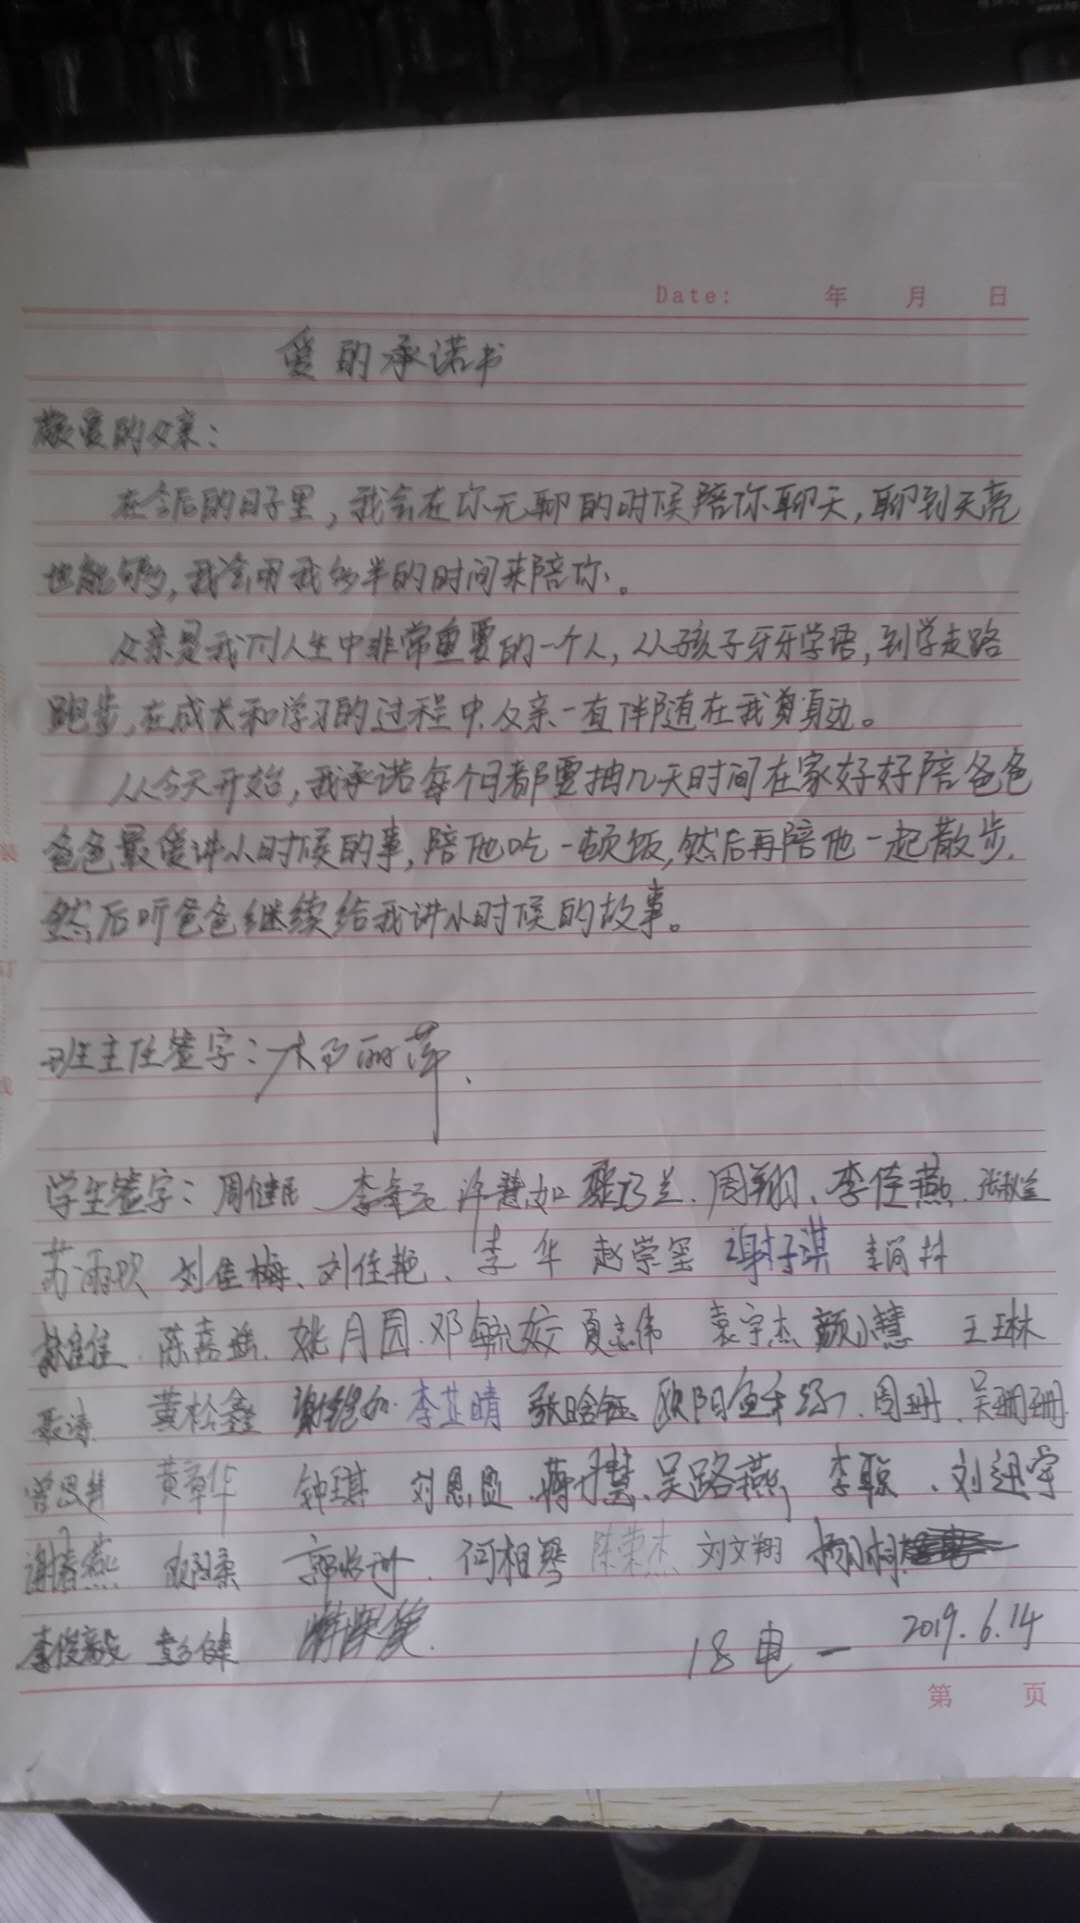 Date: 年 月 日
爱的承诺书
敬爱的父亲：
在今后的日子里，我会在你无聊的时候陪你聊天，聊到天亮
也能够，我会用我多半的时间来陪你。
父亲是我们人生中非常重要的一个人，从孩子牙牙学语，到学走路
跑步，在成长和学习的过程中父亲一直伴随在我身边。
从今天开始，我承诺每个月都要抽几天时间在家好好陪爸爸
爸爸最爱讲小时候的事，陪他吃一顿饭，然后再陪他一起散步.
然后听爸爸继续给我讲小时候的故事。
班主任签字：丽萍
学生签字：周健民 许慧如 周翔、李佳燕
刘佳梅、刘佳艳、李华 赵崇玺 谢子淇
陈嘉瑶、姚月园.邓毓姣 夏志伟 袁宇杰 颜小慧 王琳
聂涛 黄松鑫 谢艳如.李芷晴 张晗钰 欧阳 周珊、吴珊珊
黄章华 钟琪 刘恩 蒋子慧、吴路燕 李聪、刘迅宇
谢春燕 何相 陈荣杰 刘文翔
李俊毅 彭健
18电一 2019.6.14
第 页